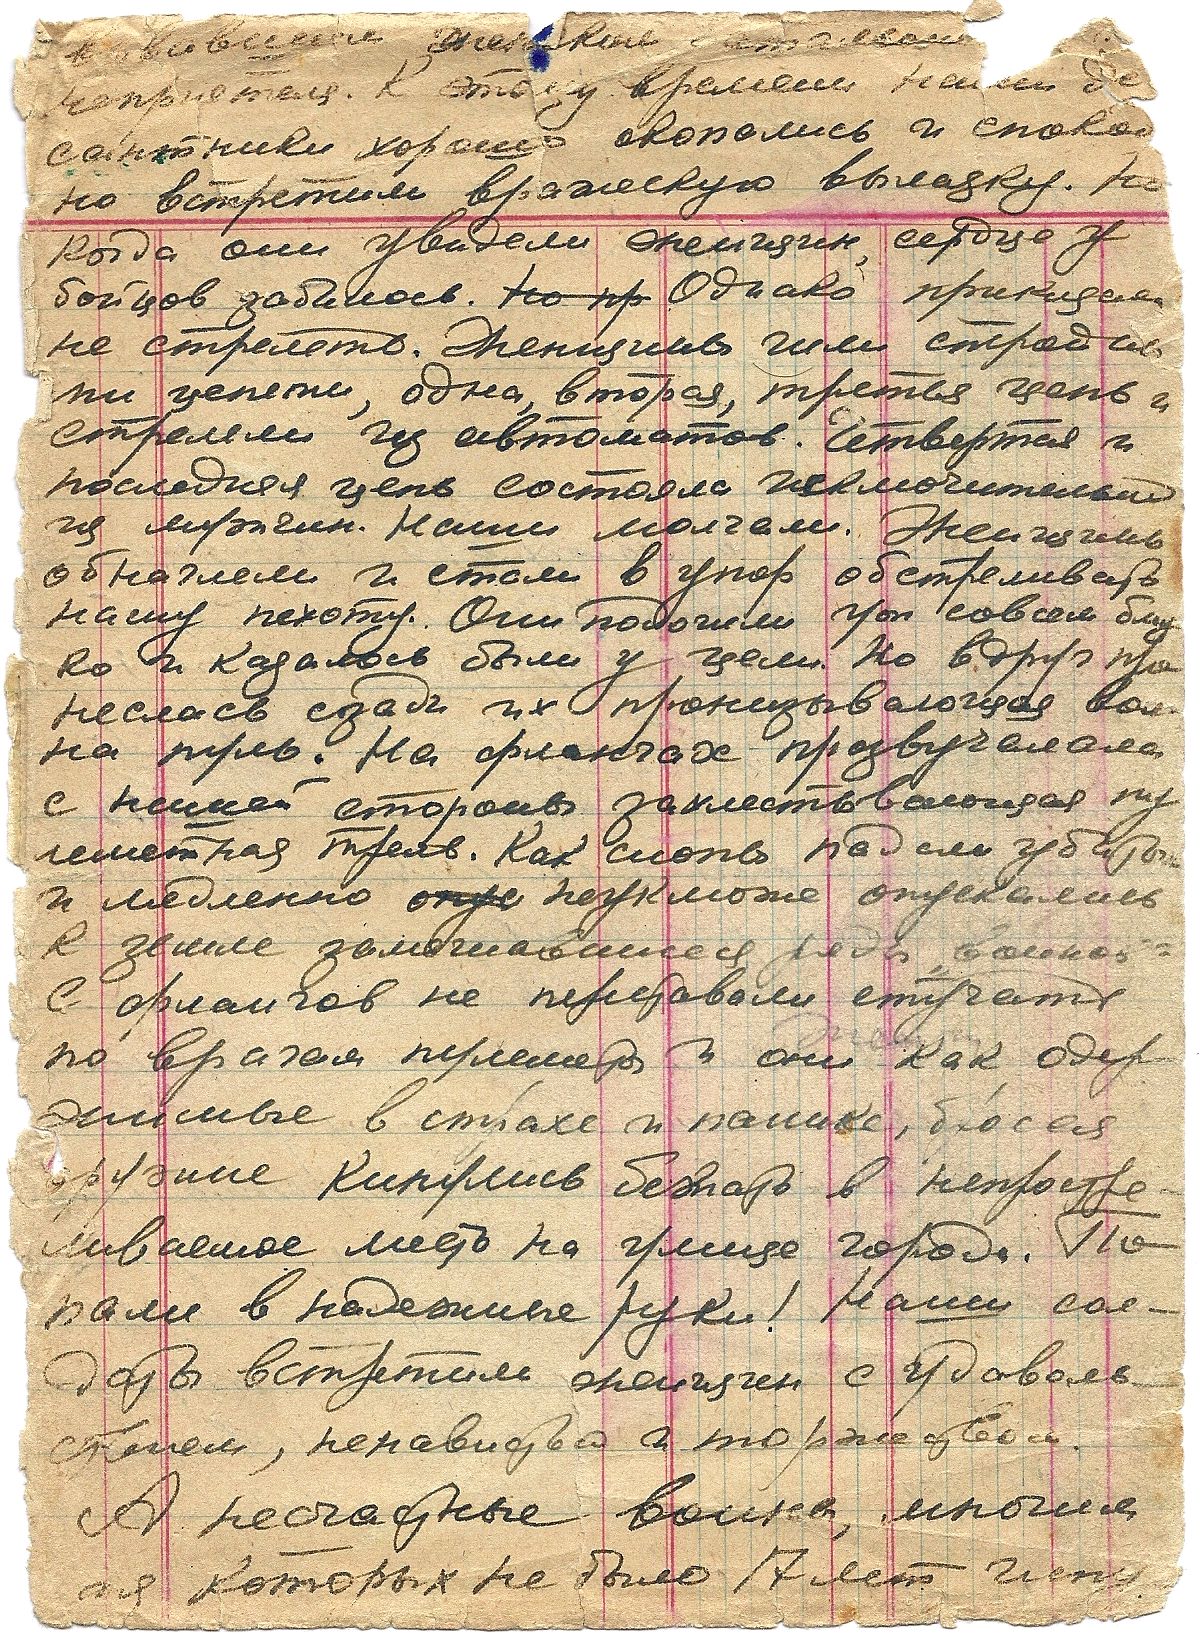 женских
неприятеля. К этому времени наши де
сантники хорошо окопались и спокой
но встретили вражескую вылазку. Но
когда они увидели женщин, сердце у
бойцов забилось. Но пр Однако приказали
не стрелять. Женщины шли стройны
ми цепями, одна, вторая, третья цепь и
стреляли из автоматов. Четвертая и
последняя цепь состояла исключительно
из мужчин. Наши молчали. Женщины
обнаглели и стали в упор обстреливать
нашу пехоту. Они подошли уж совсем близ
ко и казалось были у цели. Но вдруг про
неслась сзади их пронизывающая вол
на пуль. На флангах прозвучалала
с нашей стороны захлестывающая пу
леметная трель. Как снопы падали убитые
и медленно опус неуклюже опускались
к земле замешавшиеся ряды
С флангов не переставали стучать
по врагам пулеметы и они как одер
жимые в страхе и панике, бросая
оружие кинулись бежать в непростре-
ливаемое место на улице города. По
пали в надежные руки! Наши сол-
даты встретили женщин с удаволь-
ствием, ненавистью и торжеством.
А несчастные воины, многим
из которых не было 17 лет